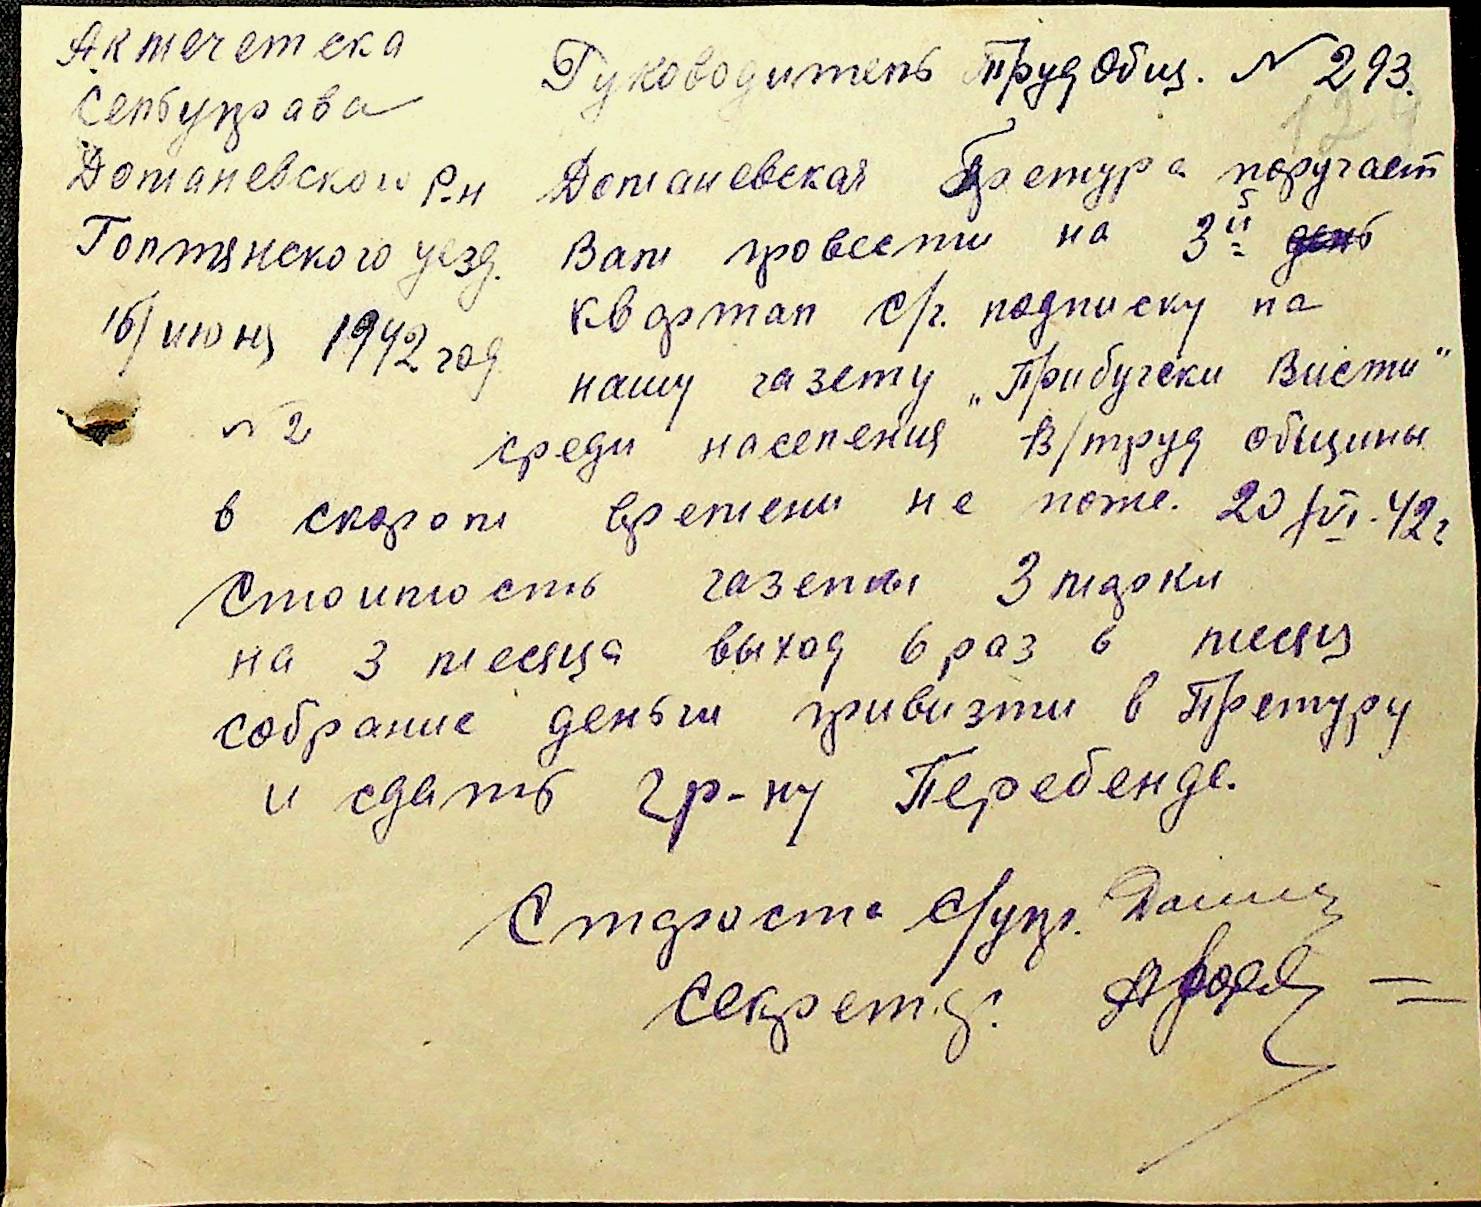 Акмечетска
Сельуправа
Доманевского Р-н
Голтянского уезд.
16/июня 1942 год
№ 2
Руководитель Труд Общ. № 293.
129
Доманевская Претура поручает
Вам провести на 3й день
Квартал с/г. подписку на
нашу газету „Прибугски Висти"
среди населения В/труд общины
в скором времени не позже. 20/VI.42г
Стоимость газеты 3 марки
на 3 месяца выход 6 раз в месяц
собрание деньги привизти в Претуру
и сдать гр-ну Перебенде.
Староста с/упр.
Секретар.